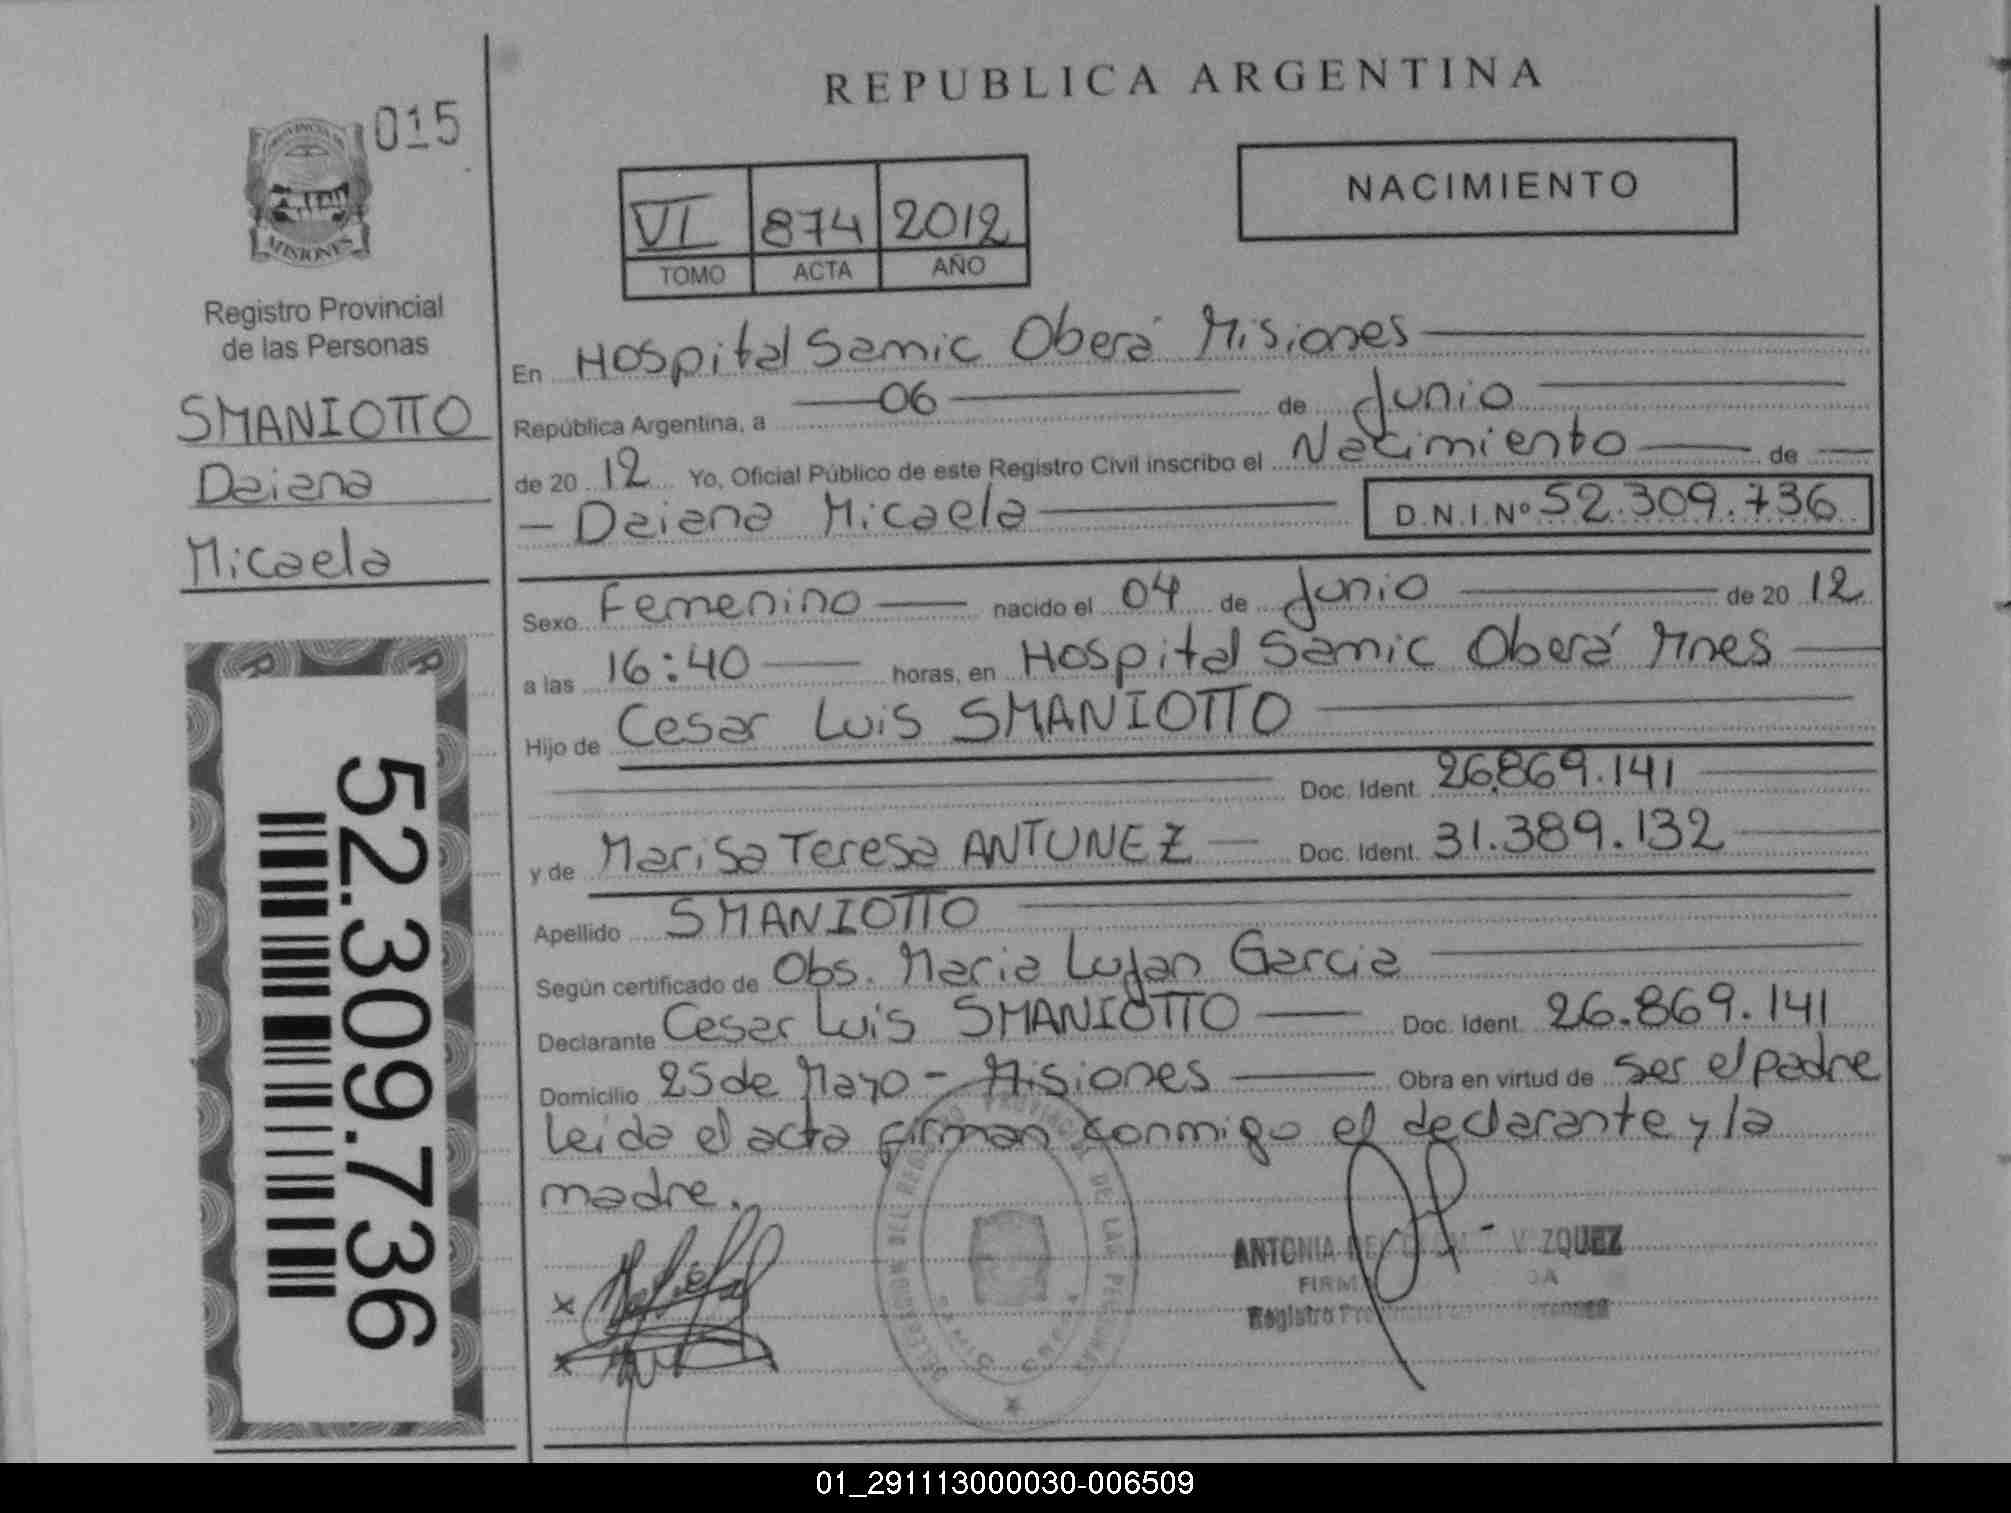 REPUBLICA ARGENTINA
015
NACIMIENTO
VI 874 2012
TOMO ACTA AÑO
MISIONES
Registro Provincial
de las Personas
SMANIOTTO
Daiana
Micaela
52.309.736
En Hospital Samic Oberá Misiones
República Argentina, a 06 de Junio
de 20 12 Yo, Oficial Público de este Registro Civil inscribo el Nacimiento de
Daiana Micaela D.N.I.Nº 52.309.736
Sexo Femenino nacido el 04 de Junio de 20 12
a las 16:40 horas, en Hospital Samic Oberá Mnes
Hijo de Cesar Luis SMANIOTTO
Doc. Ident. 26.869.141
y de Marisa Teresa ANTUNEZ Doc. Ident. 31.389.132
Apellido SMANIOTTO
Según certificado de Obs. Maria Lujan Garcia
Declarante Cesar Luis SMANIOTTO Doc. Ident. 26.869.141
Domicilio 25 de Mayo - Misiones Obra en virtud de ser el padre
leida el acta firman conmigo el declarante y la
madre.
DEL REGISTRO PROVINCIAL DE LAS PERSONAS
ANTONIA VAZQUEZ
Registro Provincial
01_291113000030-006509